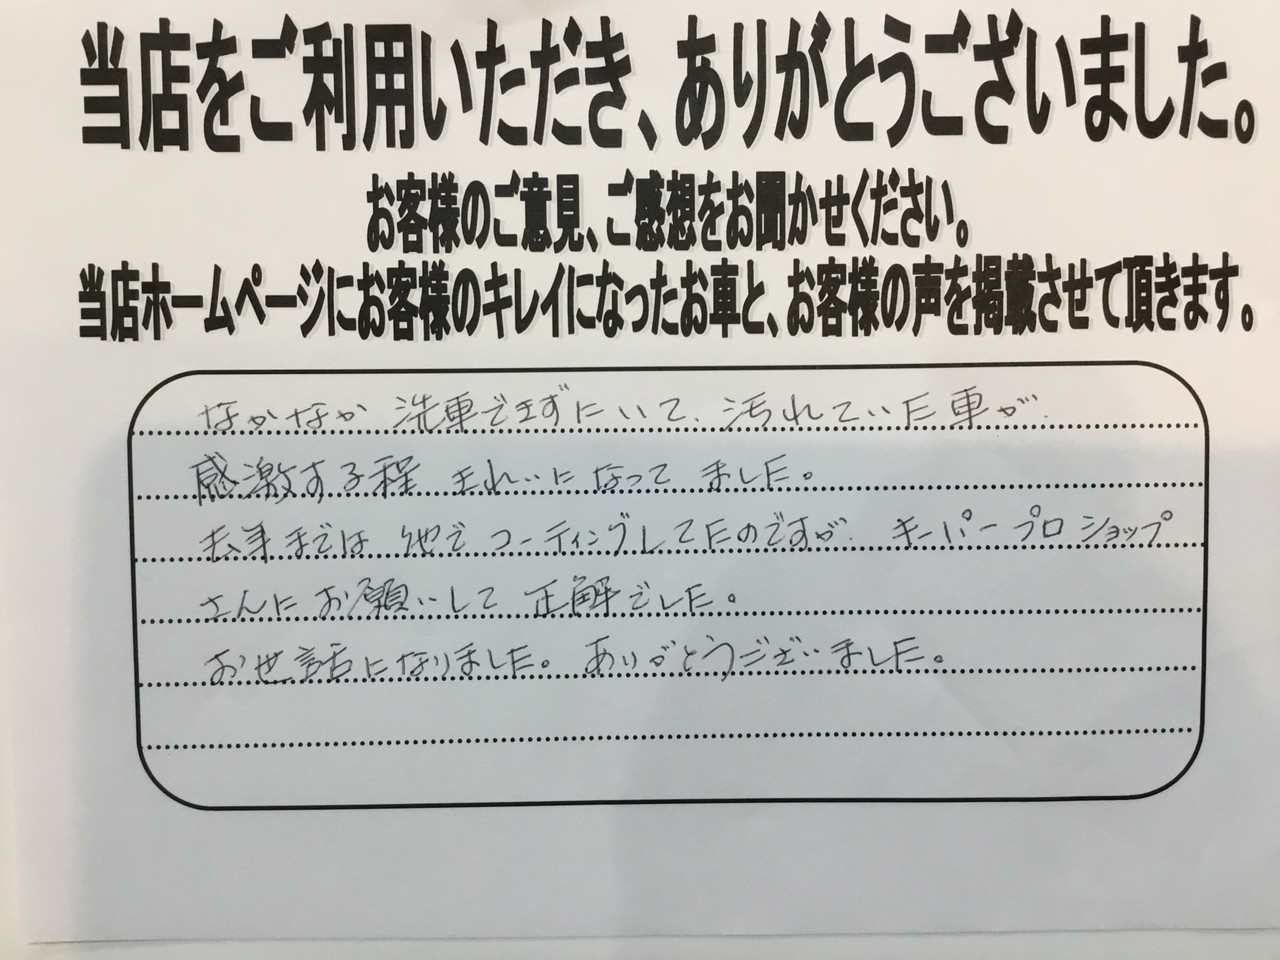 当店をご利用いただき、ありがとうございました。
お客様のご意見、ご感想をお聞かせください。
当店ホームページにお客様のキレイになったお車と、お客様の声を掲載させて頂きます。
なかなか 洗車できずにいて、汚れていた車が、
感激する程 きれいになってました。
去年までは 他で コーティングしてたのですが、 キーパープロショップ
さんに お願いして 正解でした。
お世話になりました。ありがとうございました。